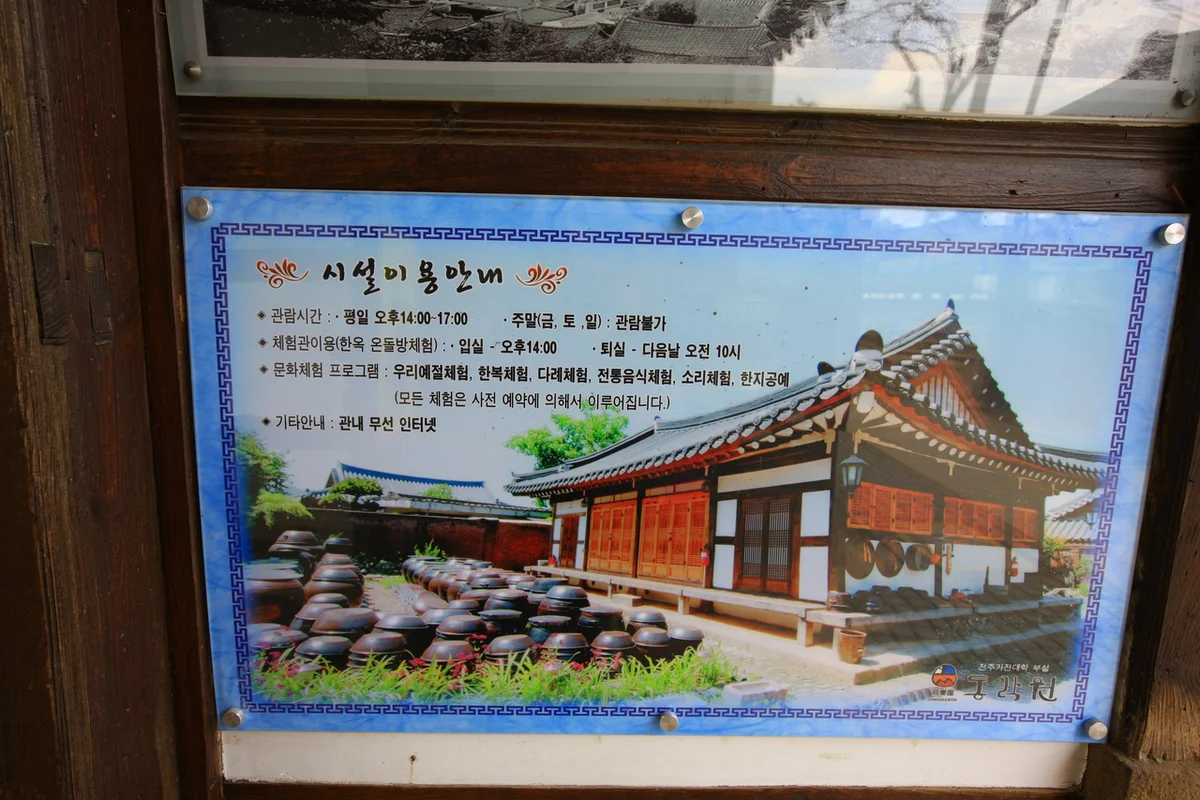 시설이용안내
◈ 관람시간 : · 평일 오후14:00~17:00 · 주말(금, 토 ,일) : 관람불가
◈ 체험관이용(한옥 온돌방체험) : · 입실 - 오후14:00 · 퇴실 - 다음날 오전 10시
◈ 문화체험 프로그램 : 우리예절체험, 한복체험, 다례체험, 전통음식체험, 소리체험, 한지공예
(모든 체험은 사전 예약에 의해서 이루어집니다.)
◈ 기타안내 : 관내 무선 인터넷
전주기전대학 부설
동락원